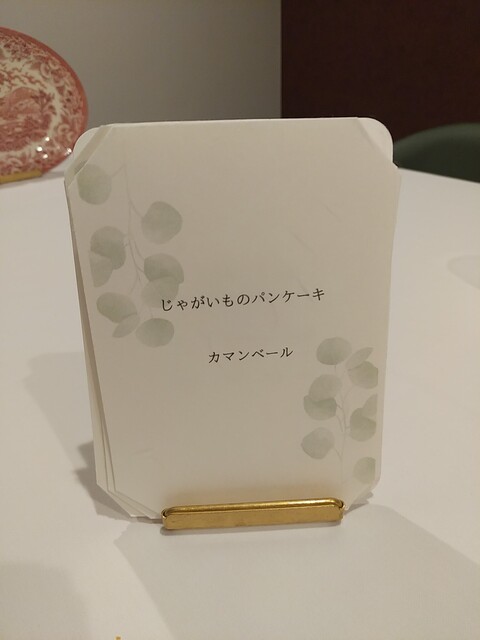 じゃがいものパンケーキ
カマンベール